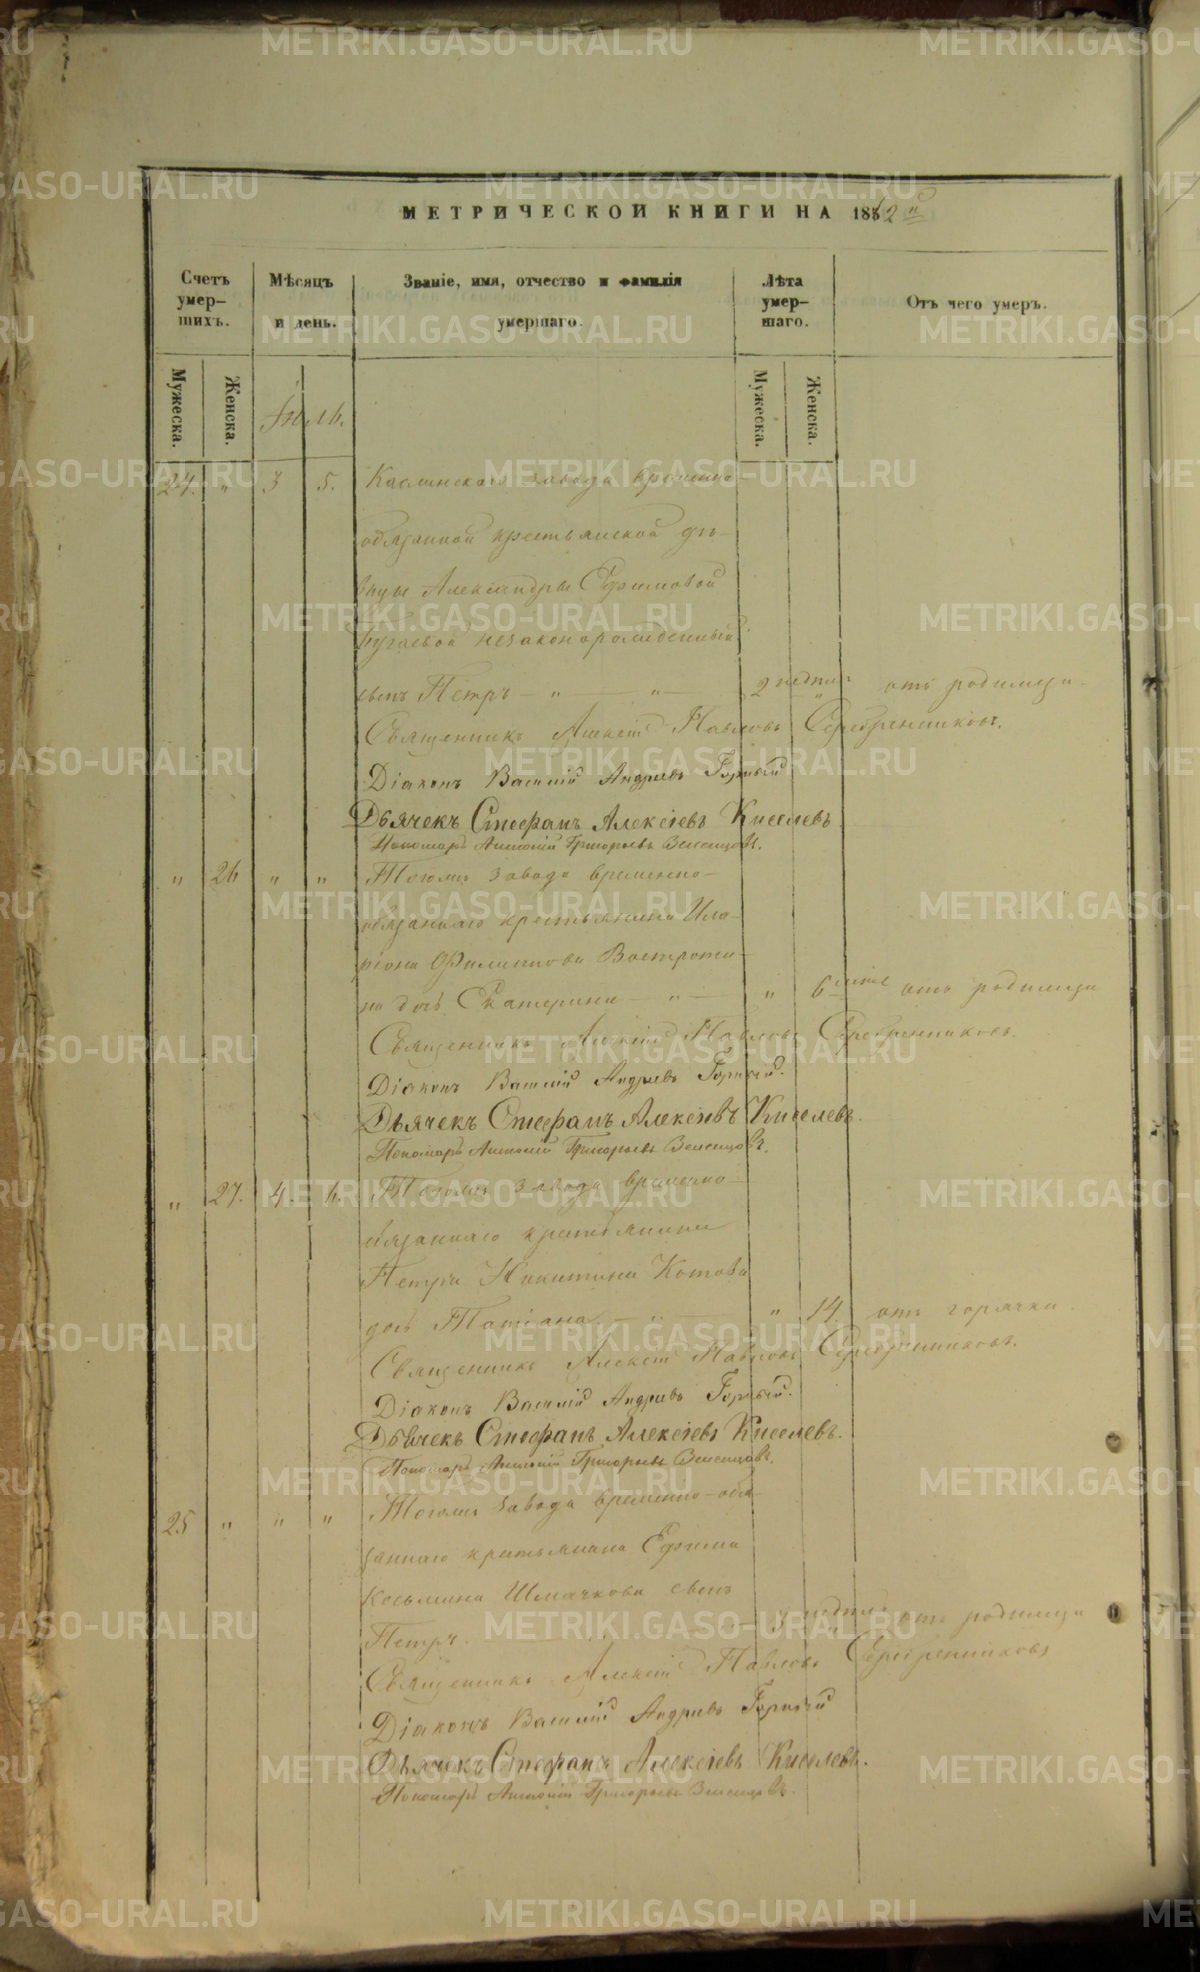 МЕТРИЧЕСКОЙ КНИГИ НА 1862й
Счетъ умер-шихъ. Мѣсяцъ и день. Званіе, имя, отчество и фамилія умершаго. Лѣта умер-шаго. Отъ чего умеръ.
Мужеска. Женска. Мужеска. Женска.
Іюль.
24. " 3 5. Каслинскаго завода временно
обязанной крестьянской дѣ-
вицы Александры Ефимовой
незаконорожденный
сынъ Петръ — " — " — 2 недѣли отъ родимца.
Священникъ Алексій Павловъ Серебренниковъ.
Діаконъ Василій Андреевъ Горный
Дьячекъ Стефанъ Алексіевъ Киселевъ
Пономарь Антоній Григорьевъ Земенцовъ.
" 26 " " Тогоже завода временно-
обязаннаго крестьянина Ила-
ріона Филиппова Вострети-
на дочь Екатерина — " — " 6 отъ родимца
Священникъ Алексій Павловъ Серебренниковъ.
Діаконъ Василій Андреевъ Горный.
Дьячекъ Стефанъ Алексіевъ Киселевъ.
Пономарь Антоній Григорьевъ Земенцовъ.
" 27. 4. 6. Тогоже завода временно-
обязаннаго крестьянина
Петра Никитина Котова
дочь Татіана — " — " 14. отъ горячки.
Священникъ Алексій Павловъ Серебренниковъ.
Діаконъ Василій Андреевъ Горный.
Дьячекъ Стефанъ Алексіевъ Киселевъ.
Пономарь Антоній Григорьевъ Земенцовъ.
25 " " " Тогоже завода временно-обя-
заннаго крестьянина Ефима
Косьмина Шмачкова сынъ
Петръ. 3 недѣли отъ родимца
Священникъ Алексій Павловъ Серебренниковъ
Діаконъ Василій Андреевъ Горный
Дьячекъ Стефанъ Алексіевъ Киселевъ.
Пономарь Антоній Григорьевъ Земенцовъ.
METRIKI.GASO-URAL.RU